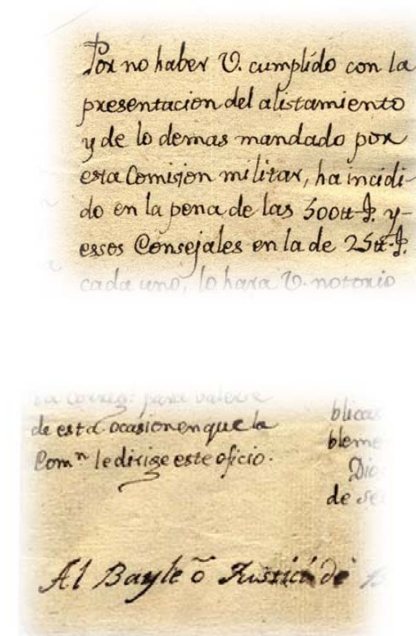 Por no haber V. cumplido con la
presentacion del alistamiento
y de lo demas mandado por
esta Comision militar, ha incidi-
do en la pena de las 500tt-
essos Consejales en la de 25tt
cada uno, lo hara V. notorio
para valerse
de esta ocasion en que la
Comⁿ le dirige este oficio.
blica
bleme
Dio
de se
Al Bayle ô Justicia de